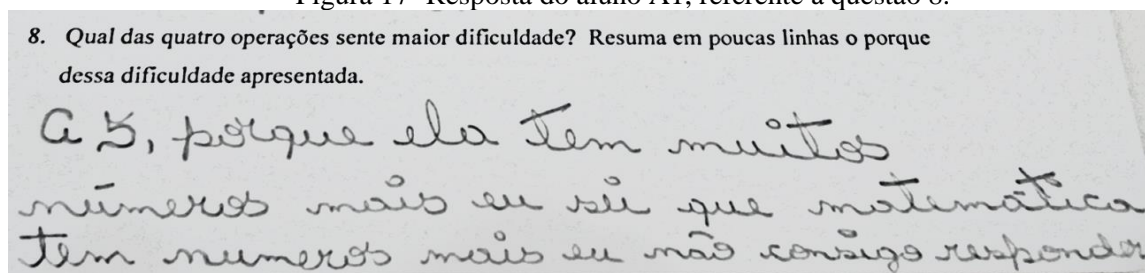 Figura 17- Resposta do aluno A1, referente a questão 8.
8. Qual das quatro operações sente maior dificuldade? Resuma em poucas linhas o porque
dessa dificuldade apresentada.
a 5, porque ela tem muitos
números mais eu sei que matemática
tem numeros mais eu não consigo responder